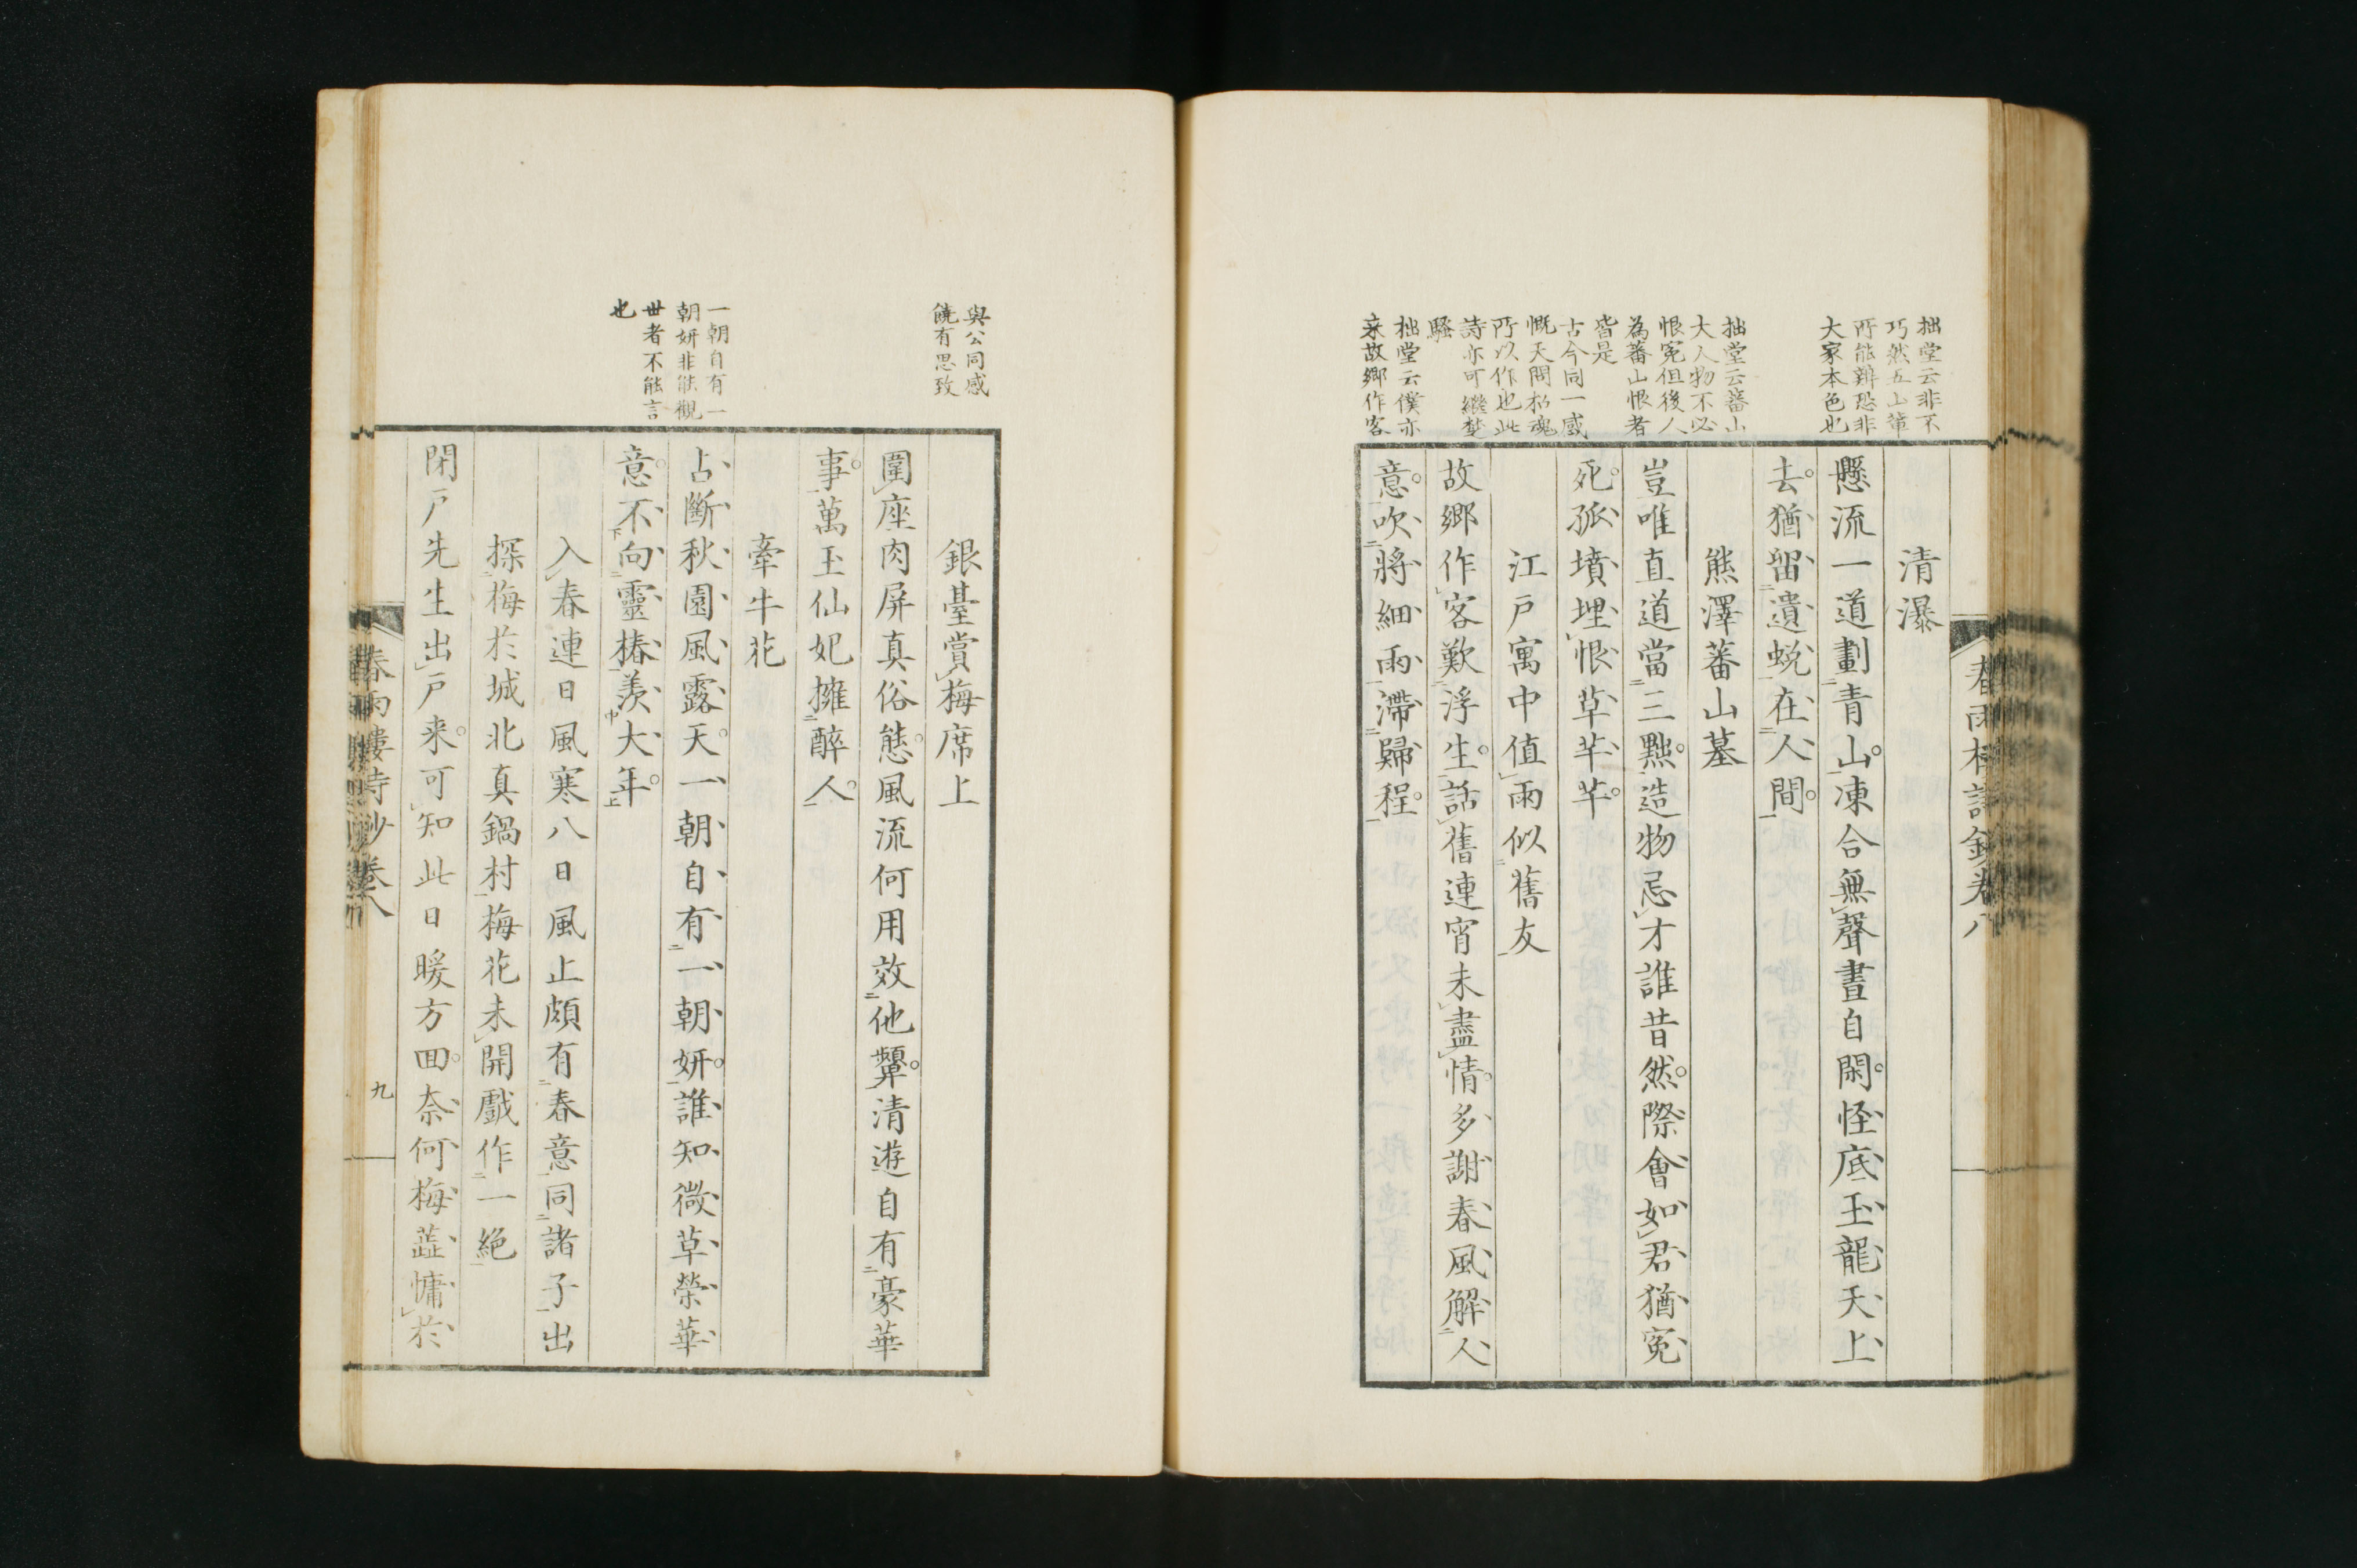 拙堂云非不
巧然五山輩
所能辨恐非
大家本色也
拙堂云蕃山
大人物不必
恨冤但後人
為蕃山恨者
皆是
古今同一感
慨天問招魂
所以作也此
詩亦可繼楚
騷
拙堂云僕亦
来故鄉作客
清瀑
懸流一道劃青山凍合無聲晝自閑怪底玉龍天上
去猶留遺蛻在人間
熊澤蕃山墓
豈唯直道當三黜造物忌才誰昔然際會如君猶冤
死孤墳埋恨草芊芊
江戸寓中值雨似舊友
故鄉作客歎浮生話舊連宵未盡情多謝春風解人
意吹將細雨滯歸程
與公同感
饒有思致
一朝自有一
朝妍非能觀
世者不能言
也
銀臺賞梅席上
圍座肉屏真俗態風流何用效他顰清遊自有豪華
事萬玉仙妃擁醉人
牽牛花
占斷秋園風露天一朝自有一朝妍誰知微草榮華
意不向靈椿羨大年
入春連日風寒八日風止頗有春意同諸子出
探梅於城北真鍋村梅花未開戲作一絕
閉戸先生出戸来可知此日暖方回奈何梅蕋慵於
春雨樓詩鈔卷八
九